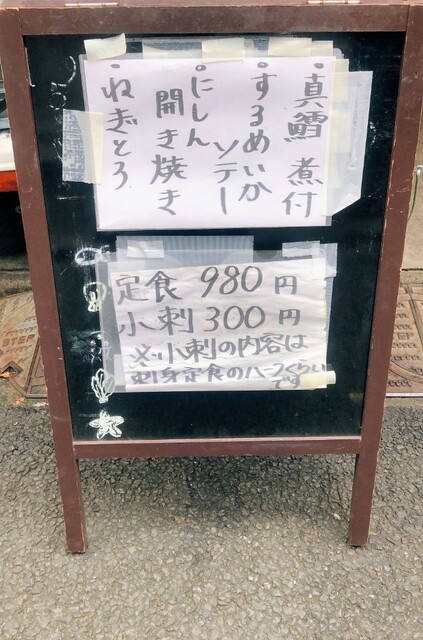 ・真鱈 煮付
・するめいか
ソテー
・にしん
開き焼き
・ねぎとろ
定食 980円
小刺 300円
※小刺の内容は
刺身定食のハーフくらい
です